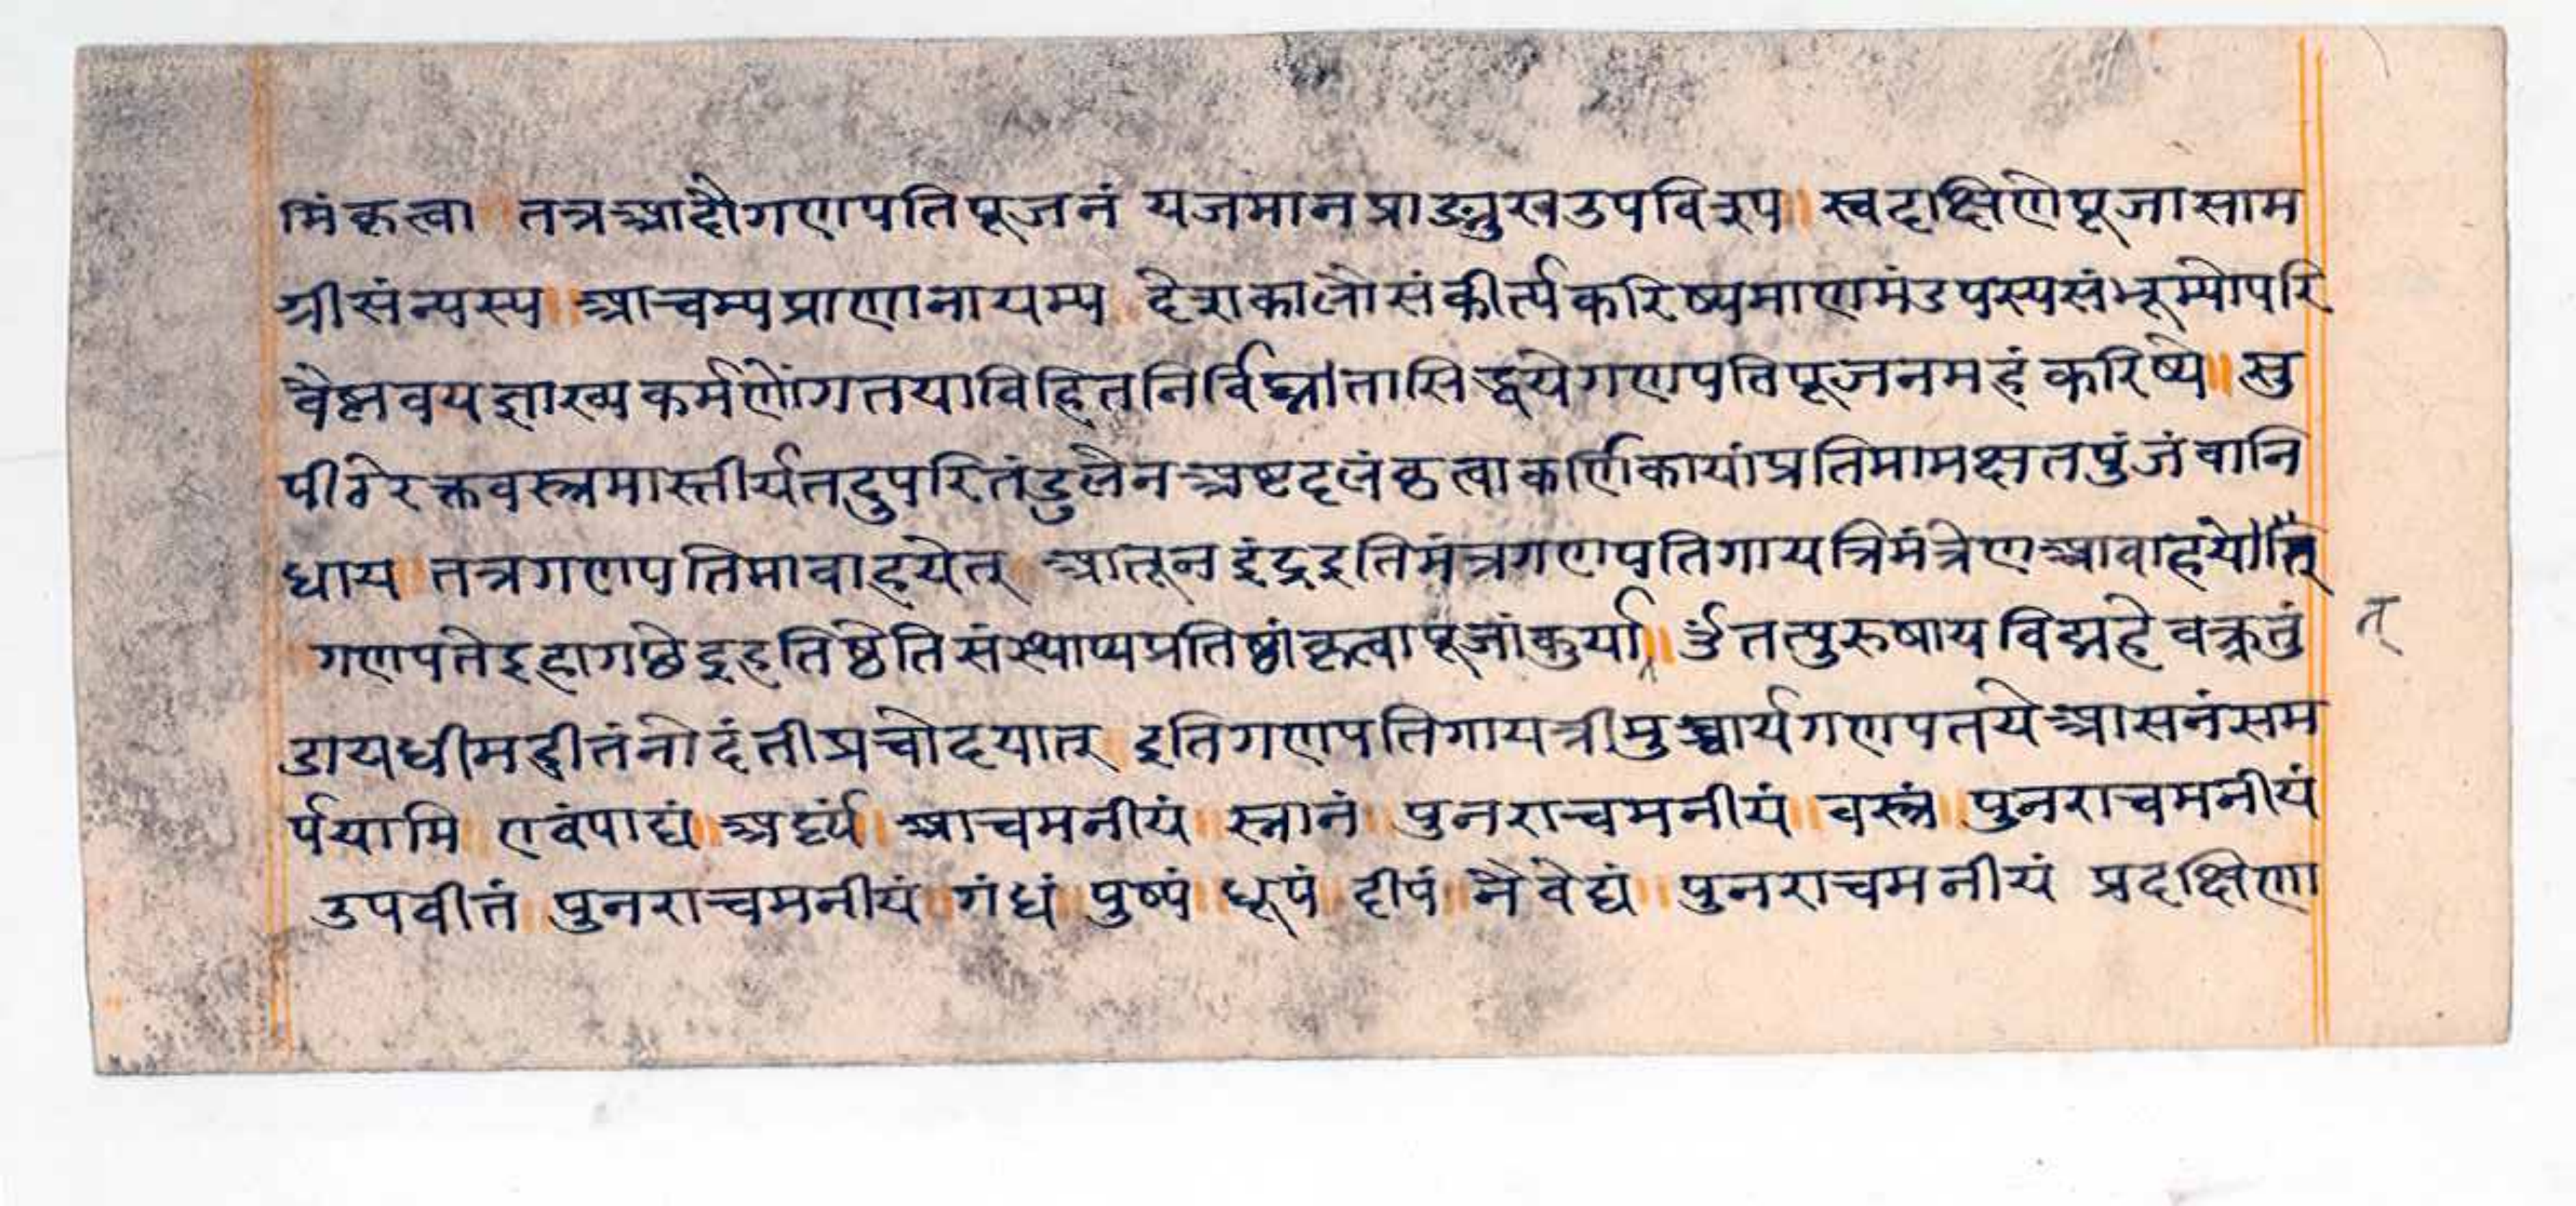 मिंकृत्वा तत्रआदौगणपतिपूजनं यजमानप्राङ्मुखउपविश्य॥ स्वदक्षिणेपूजासाम
ग्रीसंन्यस्य॥ आचम्यप्राणानायम्य देशकालौसंकीर्त्यकरिष्यमाणमंडपस्यसंभूम्योपरि
वैष्णवयज्ञाख्यकर्मणोंगतयाविहितनिर्विघ्नीतासिद्धयेगणपतिपूजनमहं करिष्ये॥ सु
पीठेरक्तवस्त्रमास्तीर्यतदुपरितंडुलेनअष्टदलंकृत्वाकर्णिकायांप्रतिमामक्षतपुंजंवानि
धाय॥ तत्रगणपतिमावाहयेत् आतूनइंद्रइतिमंत्रगणपतिगायत्रिमंत्रेणआवाहयेत्
गणपतेइहागछेइहतिष्ठेतिसंस्थाप्यप्रतिष्ठांकृत्वापूजांकुर्या॥ ॐतत्पुरुषायविद्महेवक्रतुं
त्
डायधीमहीतंनोदंतीप्रचोदयात् इतिगणपतिगायत्रीमुच्चार्यगणपतयेआसनंसम
र्पयामि॥ एवंपाद्यं॥ अर्घ्यं॥ आचमनीयं॥ स्नानं॥ पुनराचमनीयं॥ वस्त्रं॥ पुनराचमनीयं
उपवीतं॥ पुनराचमनीयं॥ गंधं॥ पुष्पं॥ धूपं॥ दीपं॥ नैवेद्यं॥ पुनराचमनीयं प्रदक्षिणा